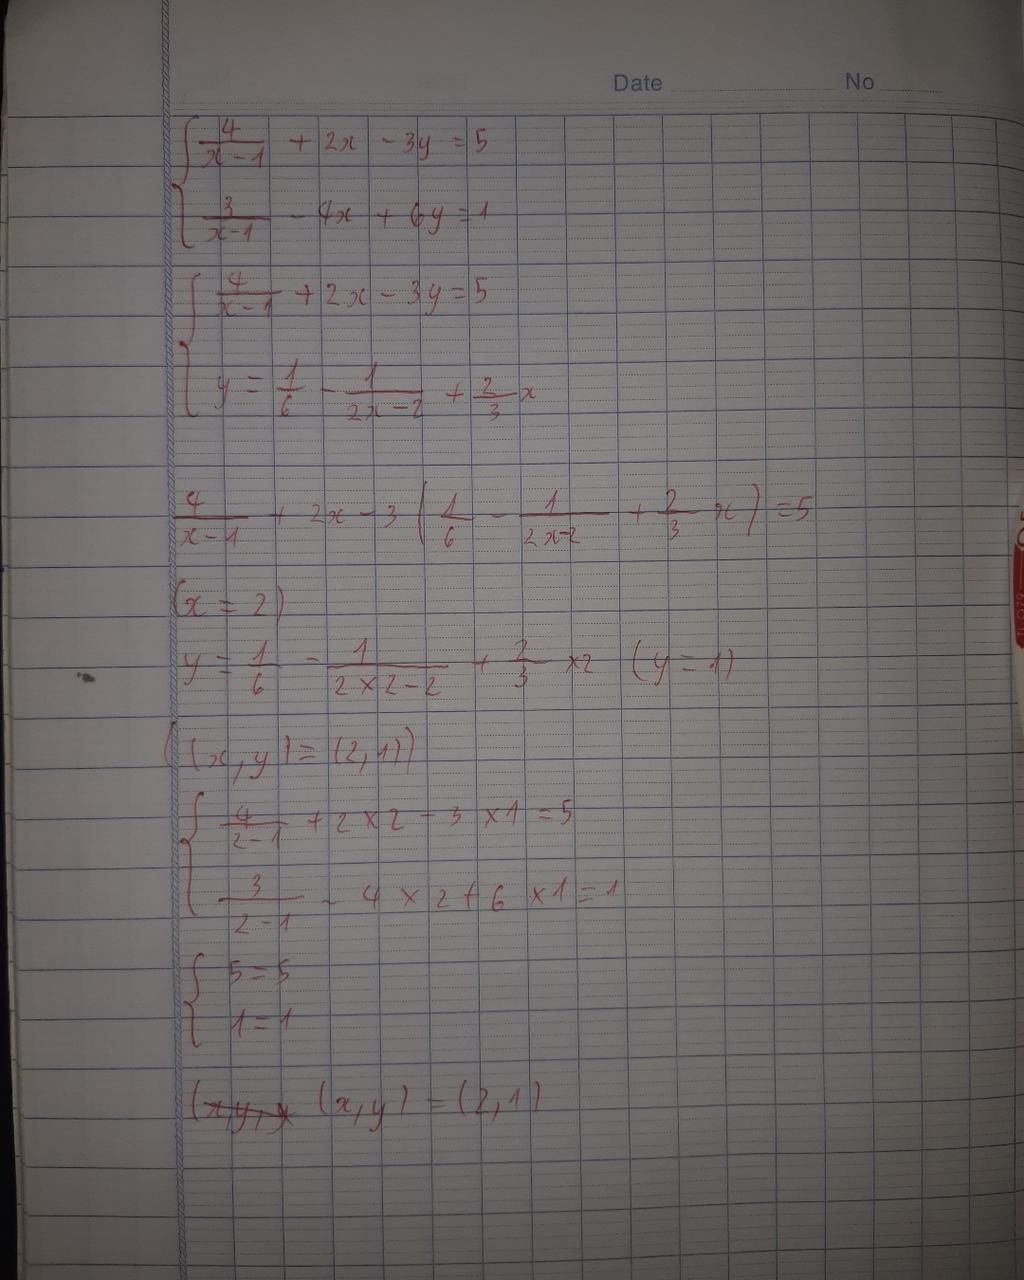 Date No
{ 4/(x-1) + 2x - 3y = 5
3/(x-1) - 4x + 6y = 1
{ 4/(x-1) + 2x - 3y = 5
y = 1/6 - 1/(2x-2) + 2/3 x
4/(x-1) + 2x - 3 (1/6 - 1/(2x-2) + 2/3 x) = 5
(x = 2)
y = 1/6 - 1/(2×2-2) + 2/3 ×2 (y = 1)
((x,y) = (2,1))
{ 4/(2-1) + 2×2 - 3×1 = 5
3/(2-1) - 4×2 + 6×1 = 1
{ 5 = 5
1 = 1
(x,y) = (2,1)